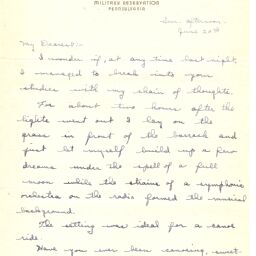 MILITARY RESERVATION
PENNSYLVANIA
Sun. afternoon -
June 20th
My Dearest:-
I wonder if, at any time last night,
I managed to break into your
studies with my chain of thoughts.
For about two hours after the
lights went out I lay on the
grass in front of the barrack and
just let myself build up a few
dreams under the spell of a full
moon while the strains of a symphonic
orchestra on the radio formed the musical
background.
The setting was ideal for a canoe
ride.
Have you ever been canoeing, sweet-